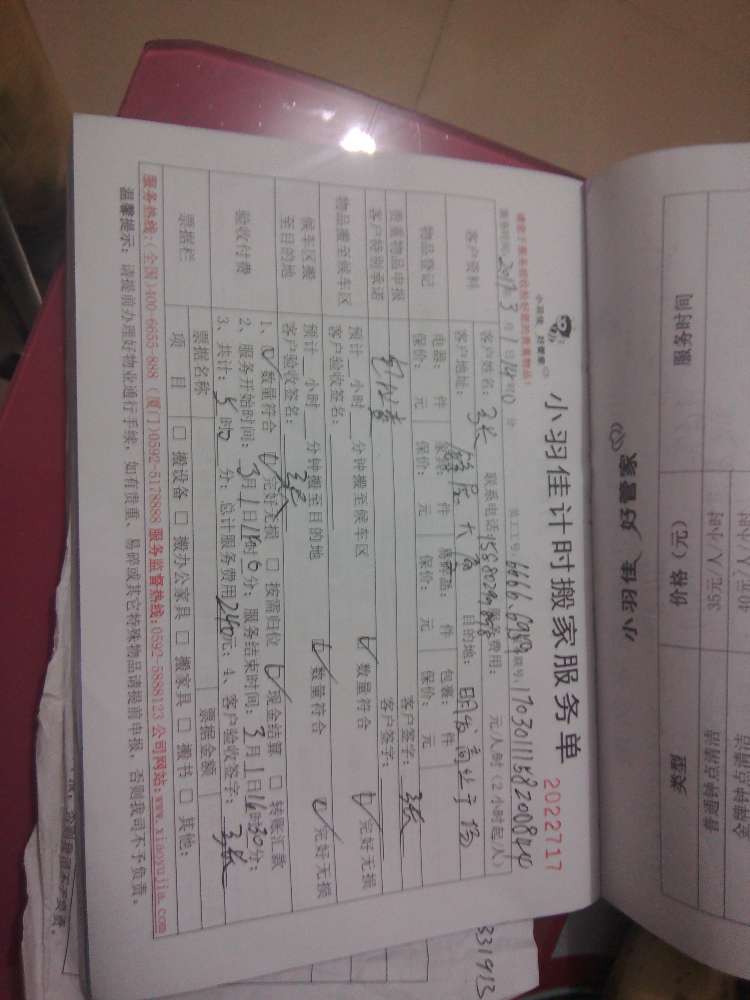 小羽佳 好管家
小羽佳计时搬家服务单
2022717
请您于服务前收拾好您的贵重物品!
服务时间: 2017年3月1日14时0分
员工工号: 6666.6989
单号: 170301115820084
客户资料
客户姓名:
联系电话
服务费用: 元/人时(2小时起/人)
客户地址:
目的地:
物品登记
电器: 件
家具: 件
易碎品: 件
包裹: 件
保价: 元
保价: 元
保价: 元
保价: 元
贵重物品申报
客户签字:
客户特别承诺
客户签字:
物品搬至候车区
预计 小时 分钟搬至候车区
数量符合
完好无损
客户验收签名:
候车区搬
至目的地
预计 小时 分钟搬至目的地
数量符合
完好无损
客户验收签名:
验收付费
1、数量符合 完好无损 □ 按需归位 现金结算 □ 转账汇款
2、服务开始时间: 3月1日14时0分; 服务结束时间: 3月1日16时30分;
3、共计: 时 分; 总计服务费用240元; 4、客户验收签字:
票据栏
票据名称
票据金额
项 目
□ 搬设备 □ 搬办公家具 □ 搬家具 □ 搬书 □ 其他:
服务热线:(全国)400-6655-888 (厦门)0592-5178888 服务监督热线:0592-5888123 公司网站:www.xiaoyujia.com
温馨提示: 请提前办理好物业通行手续, 如有贵重、易碎或其它特殊物品请提前申报, 否则我司不予负责。
小羽佳 好管家
服务时间
价格(元)
类型
35元/人/小时
普通钟点清洁
40元/人/小时
金牌钟点清洁
331913